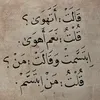 قَالَتْ : أَتَهْوَى ؟
قُلْتُ : نَعَمْ أَهْوَى .
إِبْتَسَمَتْ وَقَالَتْ : مَنْ ؟
قُلْتُ : مَنْ إِبْتَسَمْ .